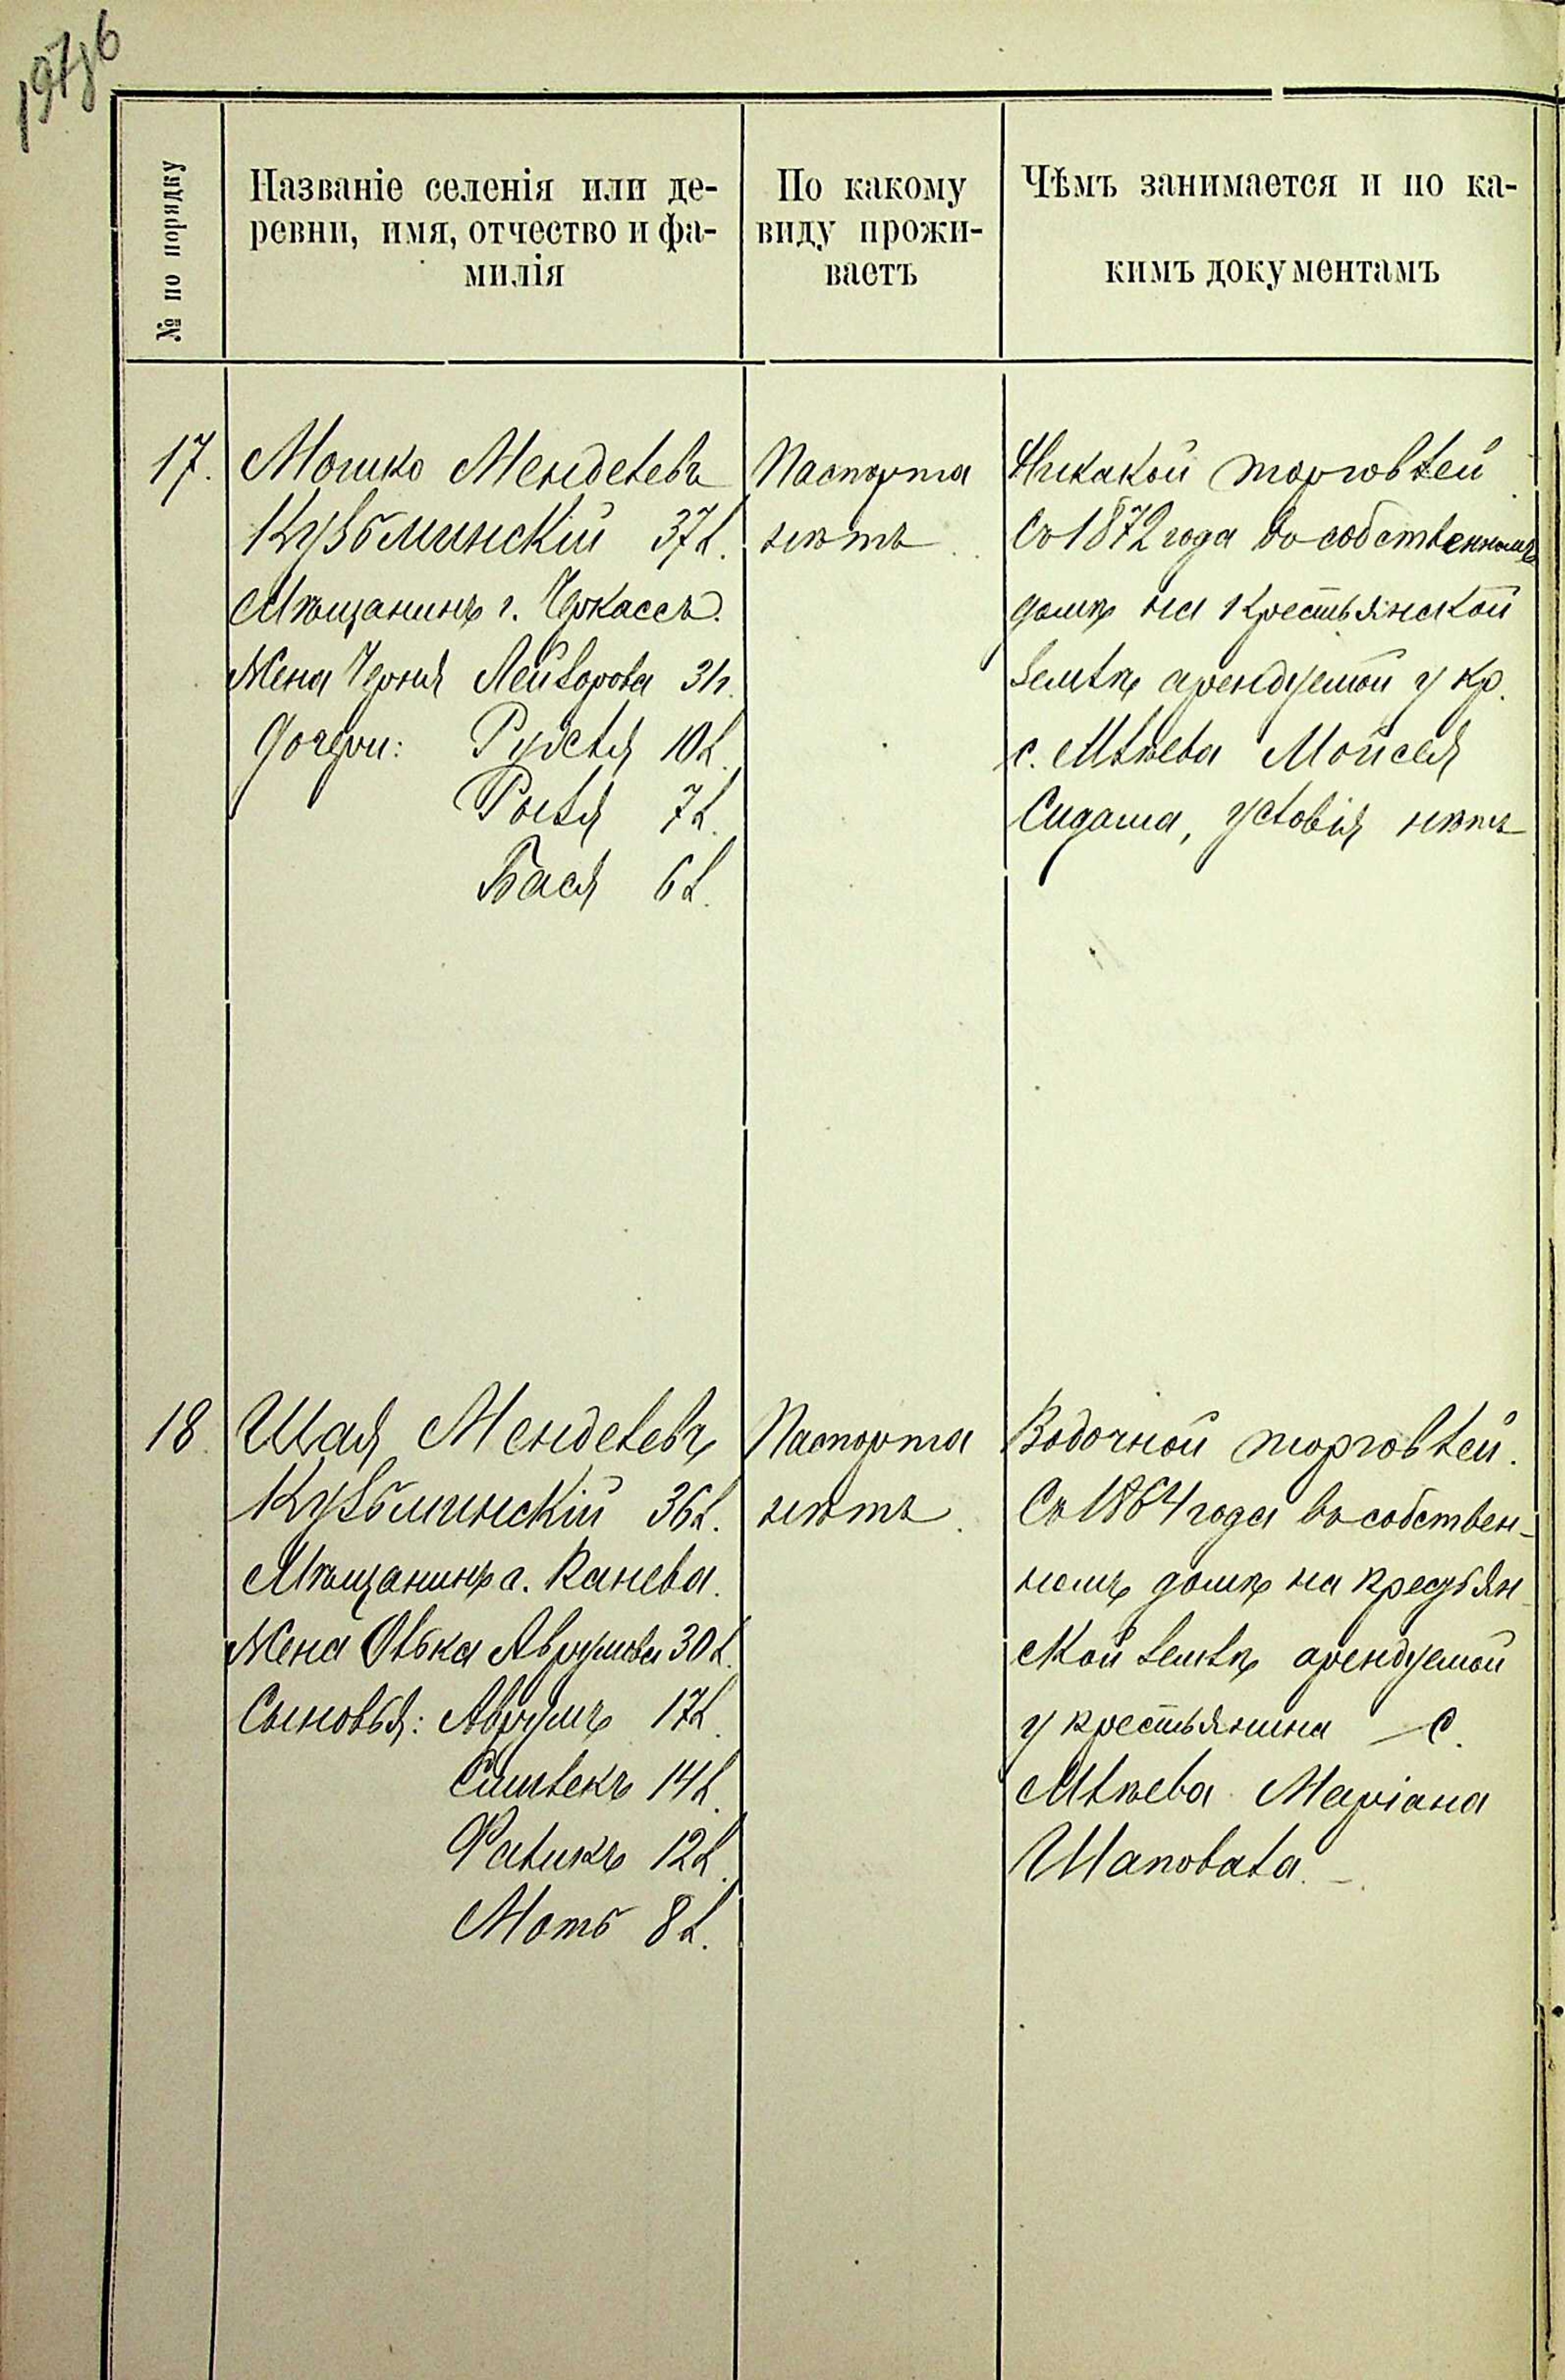 197об
№ по порядку
Названіе селенія или де-
ревни, имя, отчество и фа-
милія
По какому
виду прожи-
ваетъ
Чѣмъ занимается и по ка-
кимъ документамъ
17.
Мошко Менделевъ
Кузьминскій 37 л.
Мѣщанинъ г. Черкассъ.
Жена Черня Лейзорова 31 г.
Дочери: Рухля 10 л.
Ройзя 7 л.
Бася 6 л.
Паспорта
нѣтъ
Никакой торговлей
Съ 1872 года въ собственномъ
домѣ на крестьянской
землѣ арендуемой у кр.
с. Млѣева Мойсея
Сидаша, условія нѣтъ
18.
Шая Менделевъ
Кузьминскій 36 л.
Мѣщанинъ г. Канева.
Жена Элька Аврумова 30 л.
Сыновья: Аврумъ 17 л.
14 л.
Фаликъ 12 л.
Моть 8 л.
Паспорта
нѣтъ.
Водочной торговлей.
Съ 1864 года въ собствен-
номъ домѣ на крестьян
ской землѣ арендуемой
у крестьянина с.
Млѣева Маріана
Шаповала. –